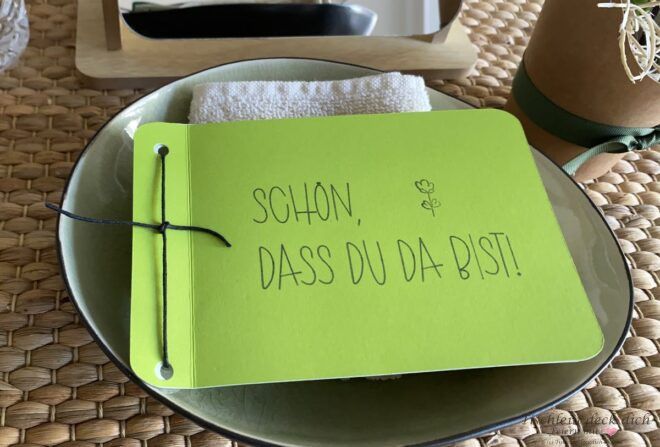 SCHÖN,
DASS DU DA BIST!
Tischlein deck dich